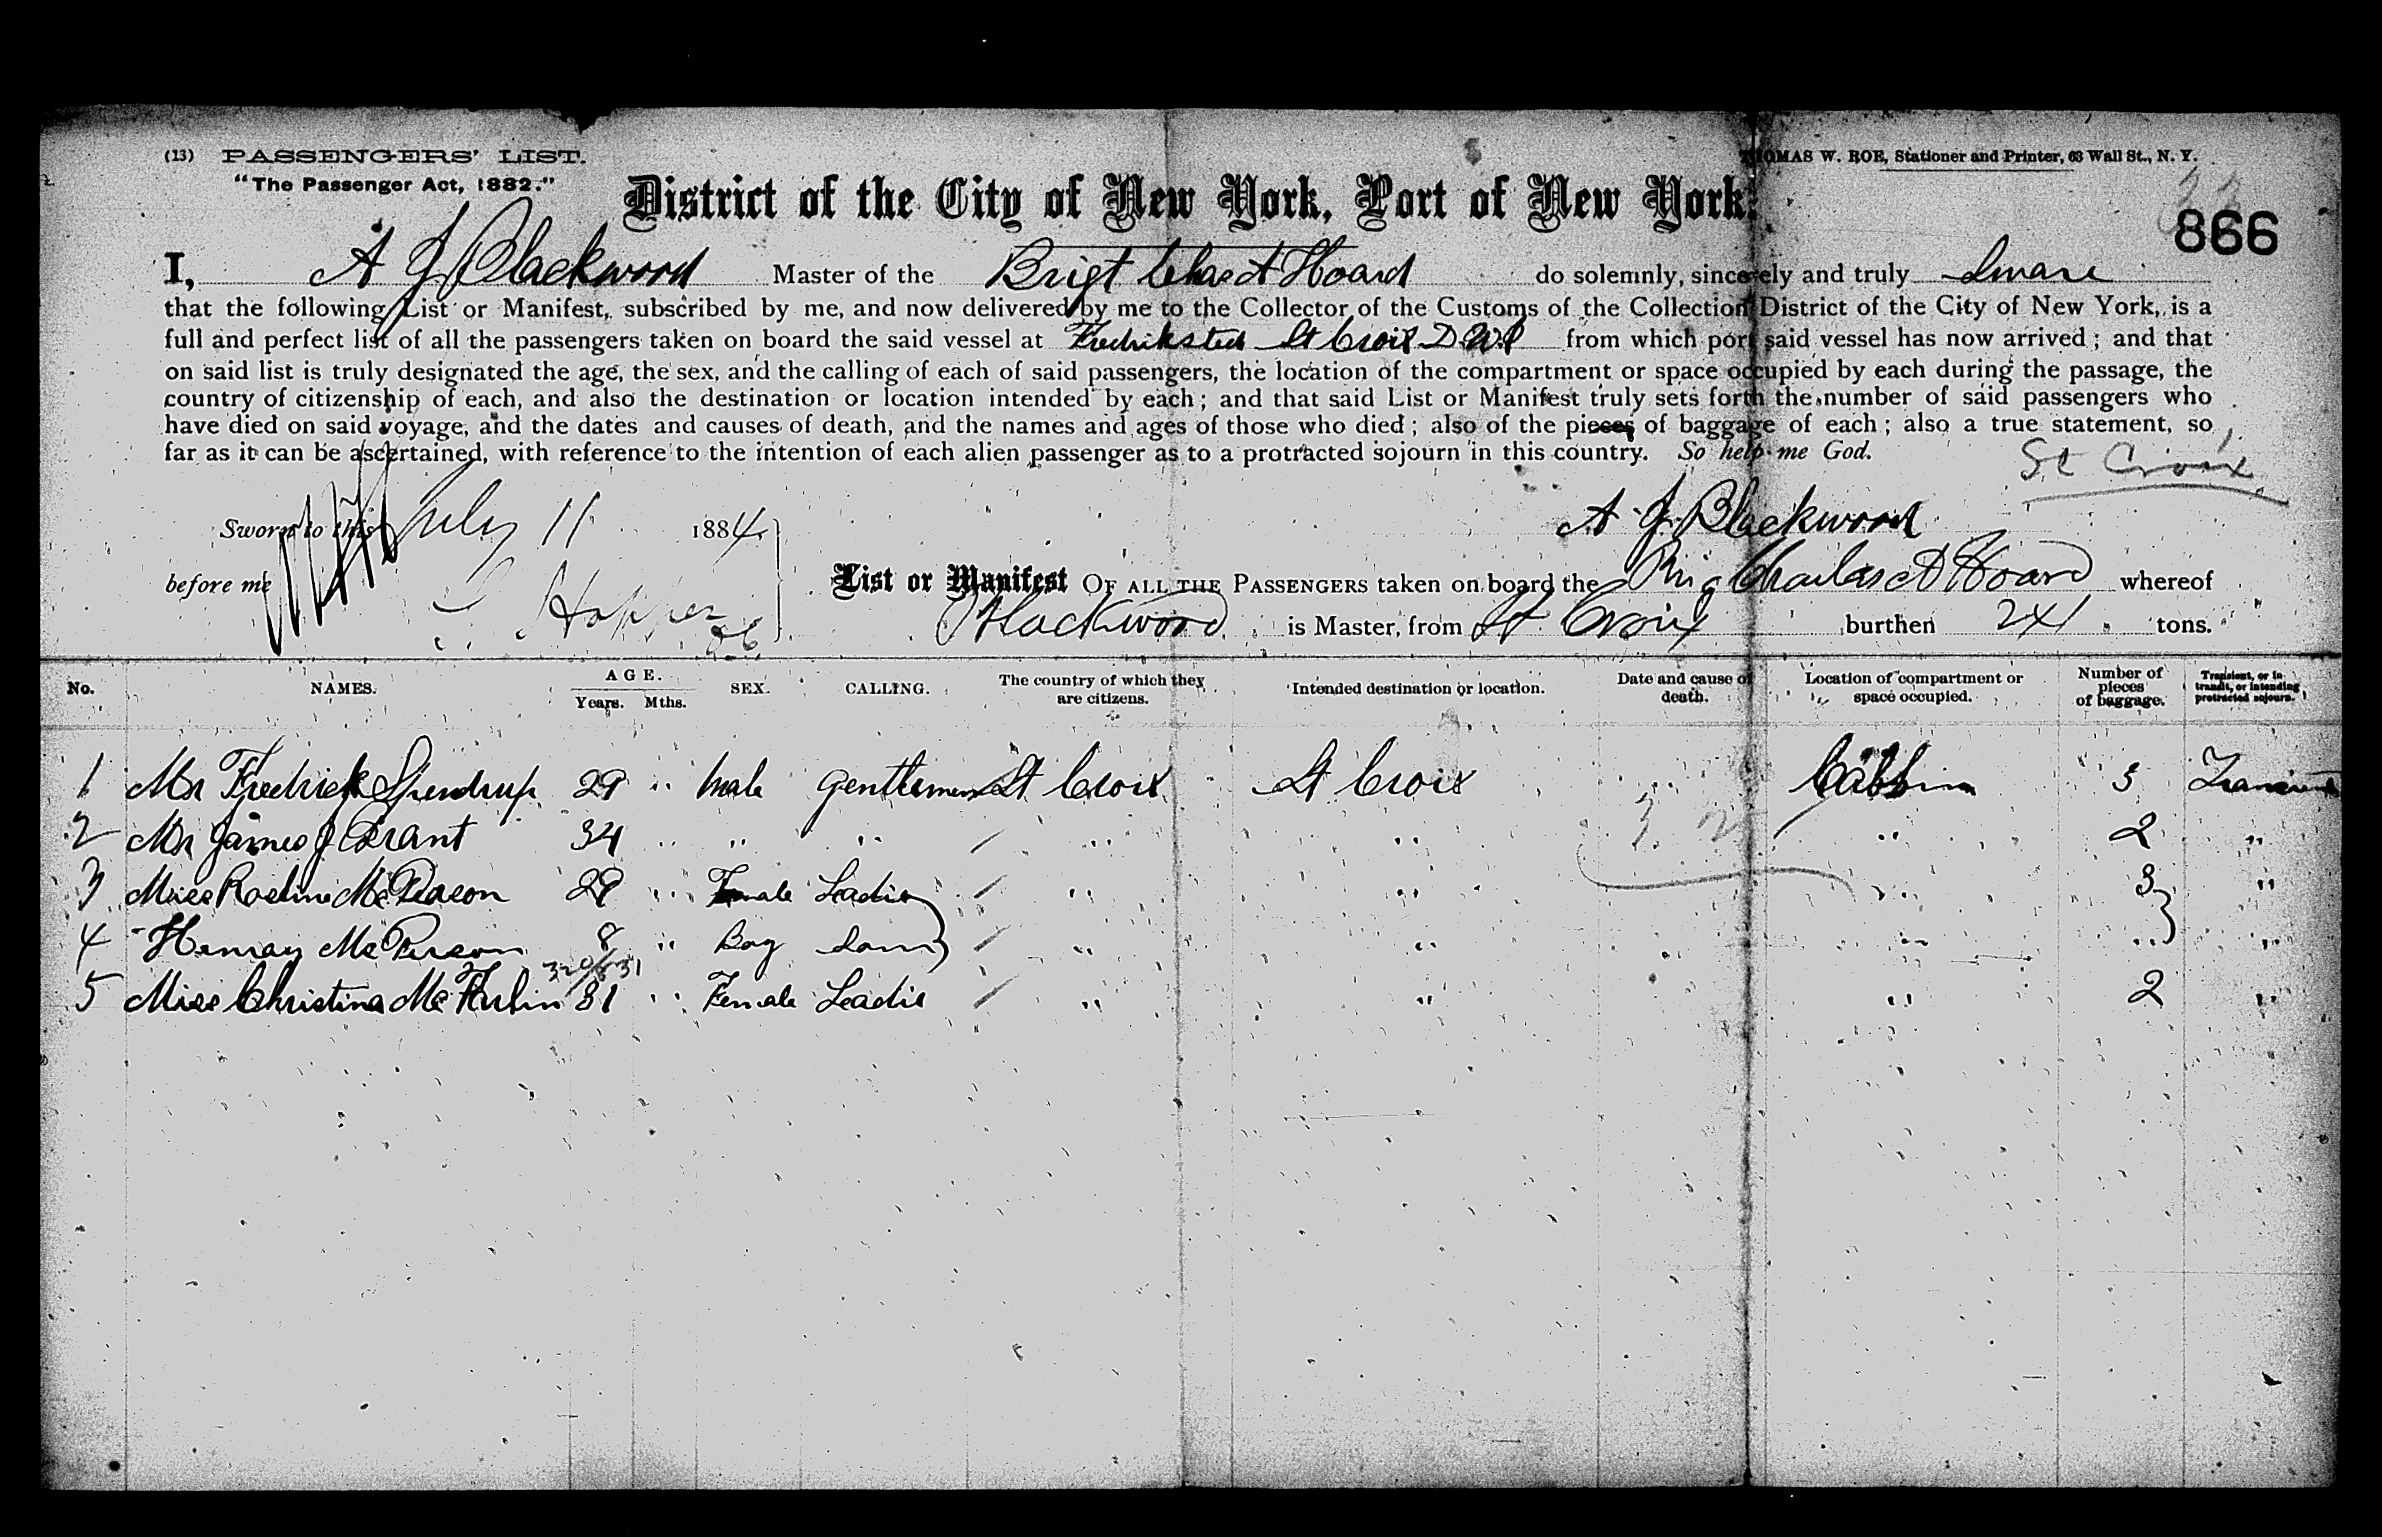 (13) PASSENGERS' LIST.
THOMAS W. ROE, Stationer and Printer, 63 Wall St., N. Y.
"The Passenger Act, 1882."
District of the City of New York, Port of New York.
866
I, A J Blackwood Master of the Brigt Chas A Hoard do solemnly, sincerely and truly Sware
that the following List or Manifest, subscribed by me, and now delivered by me to the Collector of the Customs of the Collection District of the City of New York, is a
full and perfect list of all the passengers taken on board the said vessel at Fredriksted St Croix D.W.I from which port said vessel has now arrived; and that
on said list is truly designated the age, the sex, and the calling of each of said passengers, the location of the compartment or space occupied by each during the passage, the
country of citizenship of each, and also the destination or location intended by each; and that said List or Manifest truly sets forth the number of said passengers who
have died on said voyage, and the dates and causes of death, and the names and ages of those who died; also of the pieces of baggage of each; also a true statement, so
far as it can be ascertained, with reference to the intention of each alien passenger as to a protracted sojourn in this country. So help me God.
St Croix
Sworn to this July 11 1884.
A J Blackwood
before me
List or Manifest OF ALL THE PASSENGERS taken on board the Brig Charles A Hoard whereof
Blackwood is Master, from St Croix burthen 241 tons.
No. NAMES. AGE. Years. Mths. SEX. CALLING. The country of which they are citizens. Intended destination or location. Date and cause of death. Location of compartment or space occupied. Number of pieces of baggage. Transient, or in transit, or intending protracted sojourn.
1 Mr Fredrick 29 " male gentlemen St Croix St Croix Cabbin 3 Transient
2 Mr James J Grant 34 " " " " " " 2 "
3 Miss Roseline 29 " Female Leadie " " " 3 "
4 Henray Mc Person 8 " Boy " " " " "
5 Miss Christina 31 " Female Leadie " " " 2 "